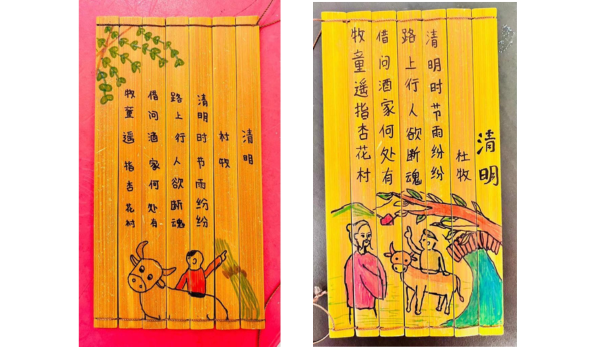 清明
杜牧
清明时节雨纷纷
路上行人欲断魂
借问酒家何处有
牧童遥指杏花村
清明
杜牧
清明时节雨纷纷
路上行人欲断魂
借问酒家何处有
牧童遥指杏花村